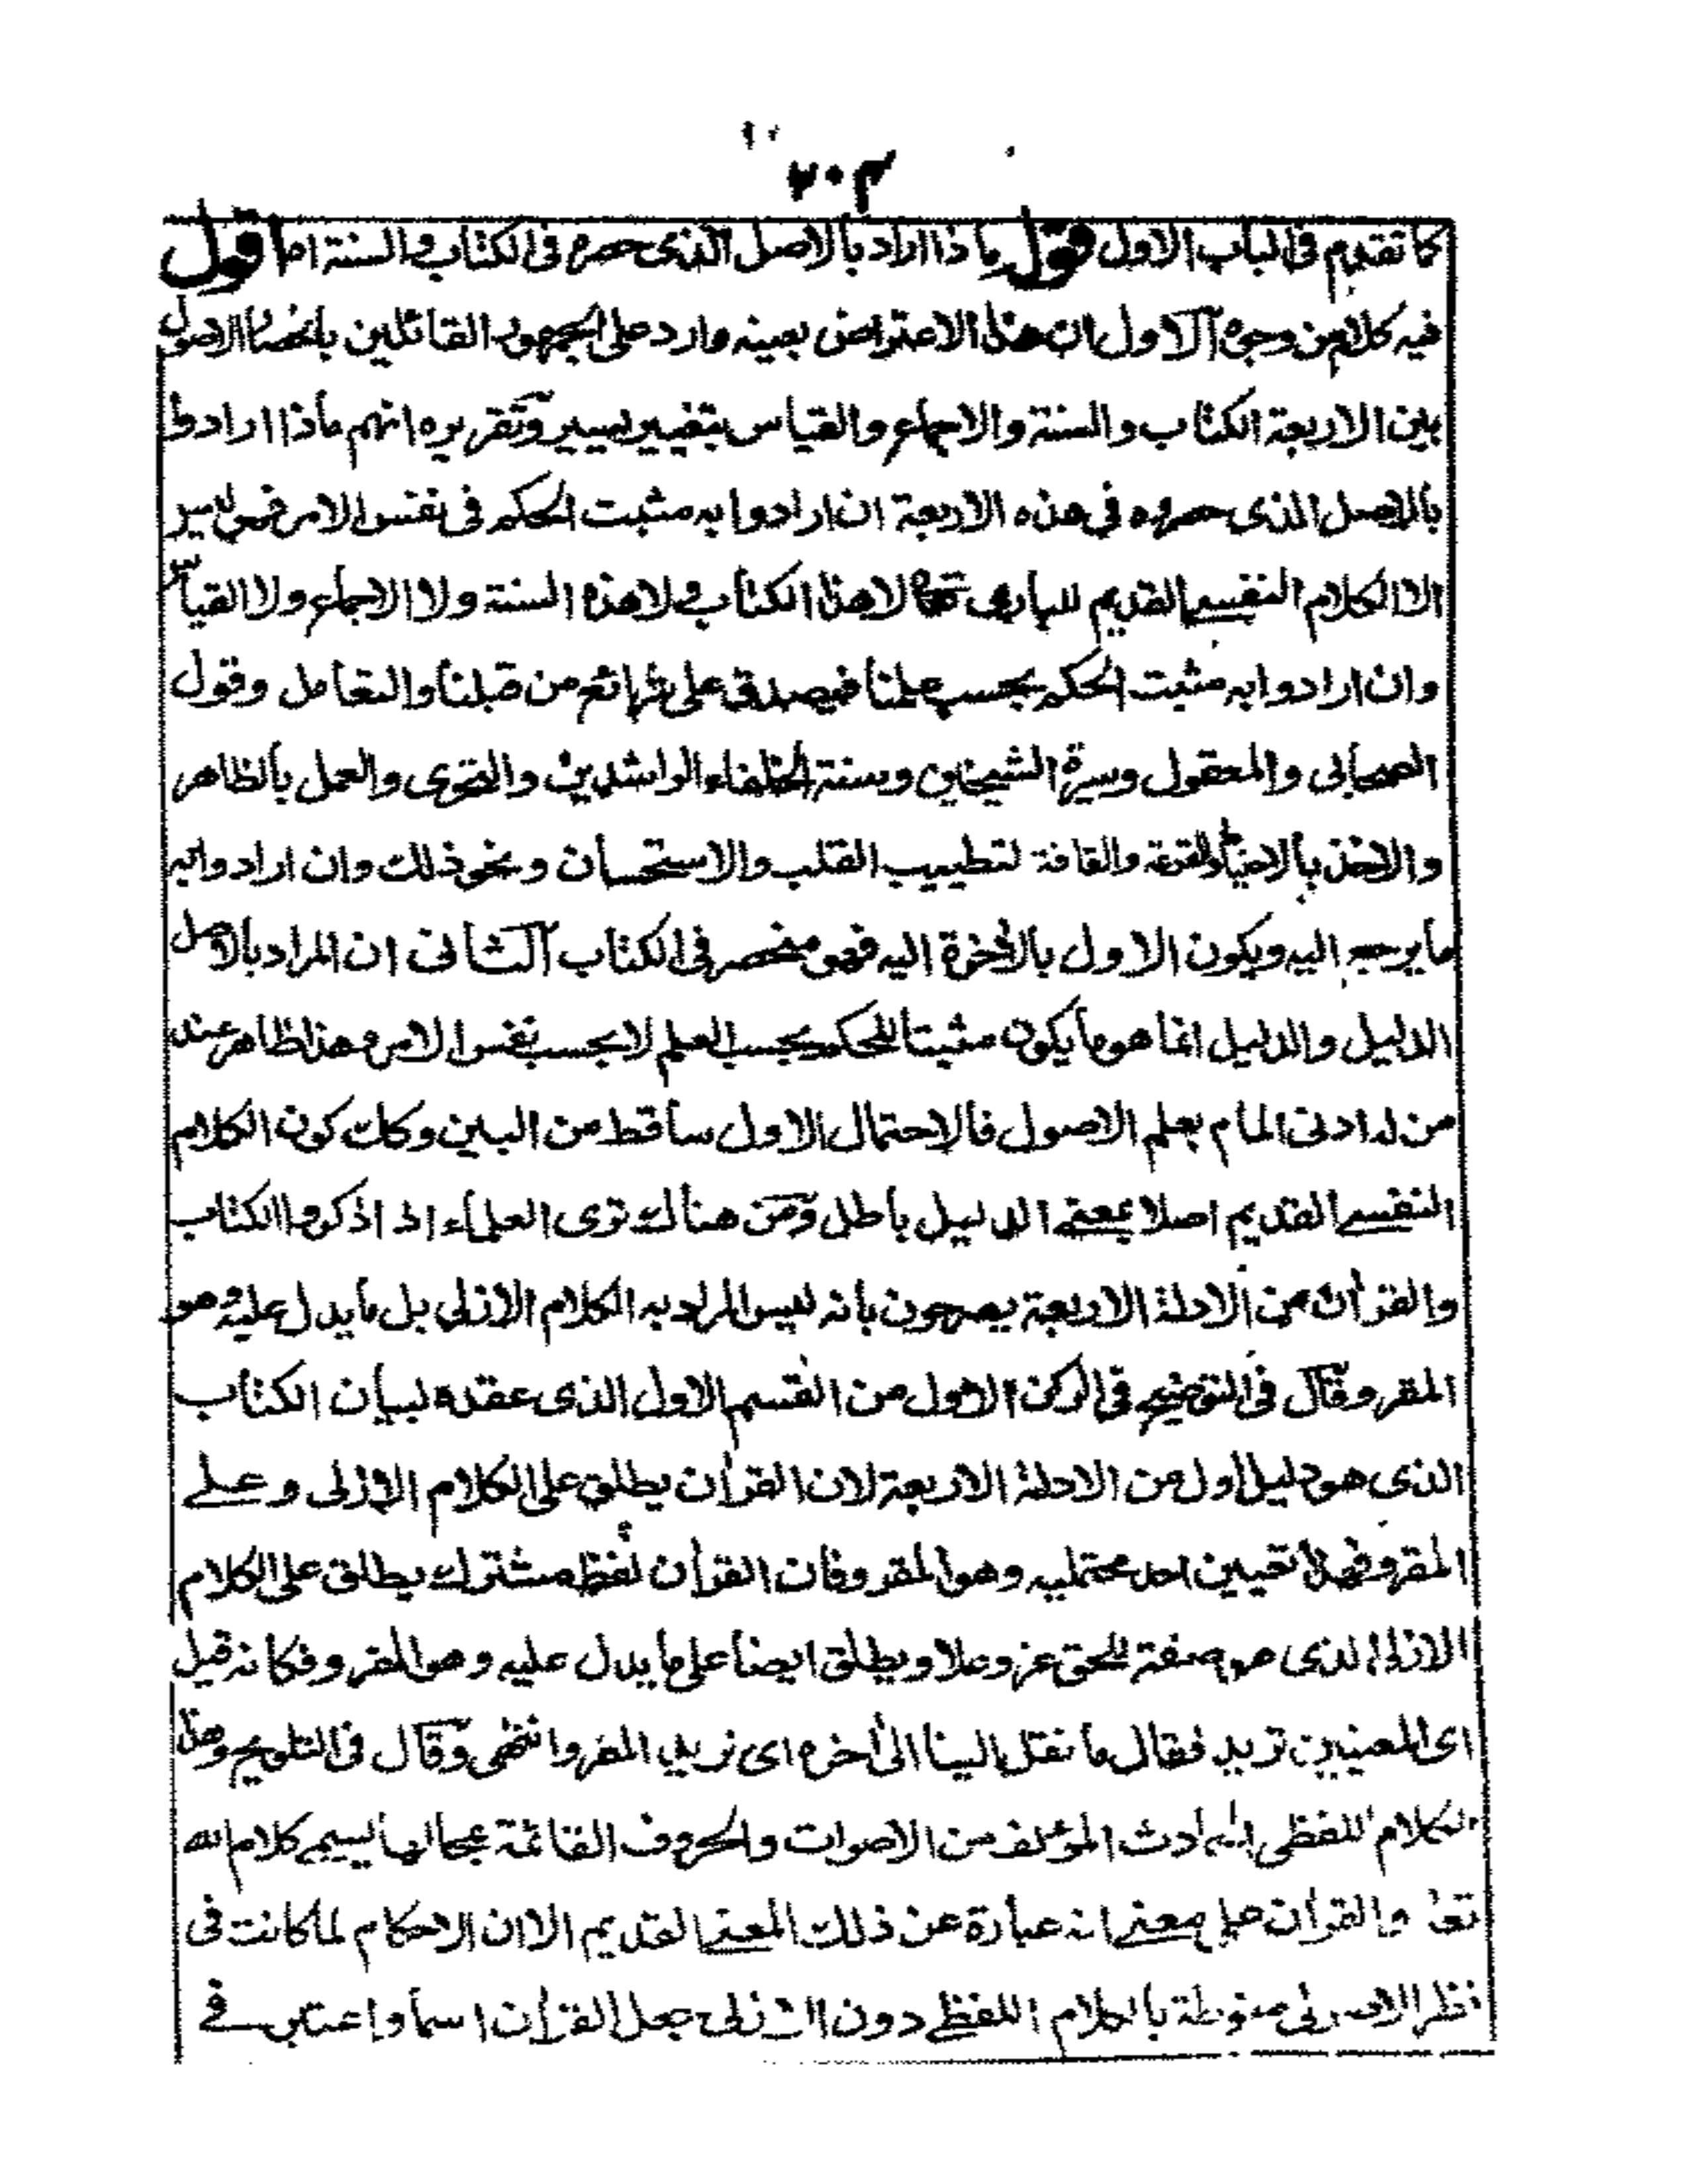 ٢٠٣
كما تقدم فى الباب الاول قوله ماذا اراد بالاصل الذى حصره فى الكتاب والسنة اما اقول
فيه كلام من وجوه الاول ان هذا الاعتراض بعينه وارد على الجمهور القائلين بانحصار الاصول
بين الاربعة الكتاب والسنة والاجماع والقياس بتغيير يسير وتقريره انهم ماذا ارادوا
بالاصل الذى حصروه فى هذه الاربعة ان ارادوا به مثبت الحكم فى نفس الامر فهو ليس
الا الكلام النفسى القديم للبارى تعالى لا هذا الكتاب ولا هذه السنة ولا الاجماع ولا القياس
وان ارادوا به مثبت الحكم بحسب علمنا فيصدق على شرائع من قبلنا والتعامل وقول
الصحابى والمعقول وسيرة الشيخين وسنة الخلفاء الراشدين والفتوى والعمل بالظاهر
والاخذ بالاحتياط والقرعة والقافة لتطييب القلب والاستحسان ونحو ذلك وان ارادوا به
ما يرجع اليه ويكون الاول بالاخرة اليه فهو منحصر فى الكتاب الثانى ان المراد بالاصل
الدليل والدليل انما هو ما يكون مثبتا للحكم بحسب العلم لا بحسب نفس الامر وهذا ظاهر عند
من له ادنى المام بعلم الاصول فالاحتمال الاول ساقط من البين وكان كون الكلام
النفسى القديم اصلا بمعنى الدليل باطل ومن هناك ترى العلماء اذا ذكروا الكتاب
والقرأن من الادلة الاربعة يصرحون بانه ليس المراد به الكلام الازلى بل ما يدل عليه وهو
المقرو قال فى التوضيح فى الركن الاول من القسم الاول الذى عقده لبيان الكتاب
الذى هو دليل اول من الادلة الاربعة لان القرأن يطلق على الكلام الازلى وعلى
المقرو فهذا تعيين احد محتمليه وهو المقرو فان القرأن لفظ مشترك يطلق على الكلام
الازلى الذى هو صفة للحق عز وعلا ويطلق ايضا على ما يدل عليه وهو المقرو فكانه قيل
اى المعنيين تريد فقال ما نقل الينا الى أخره اى نريد المقرو انتهى وقال فى التلويح وهذا
الكلام اللفظى الحادث المؤلف من الاصوات والحروف القائمة بمحالها يسمى كلام الله
تعا والقرأن على معنى انه عبارة عن ذلك المعنى القديم الا ان الاحكام لما كانت فى
نظر الاصولى منوطة بالكلام اللفظى دون الازلى جعل القرأن اسما واعتبر فى